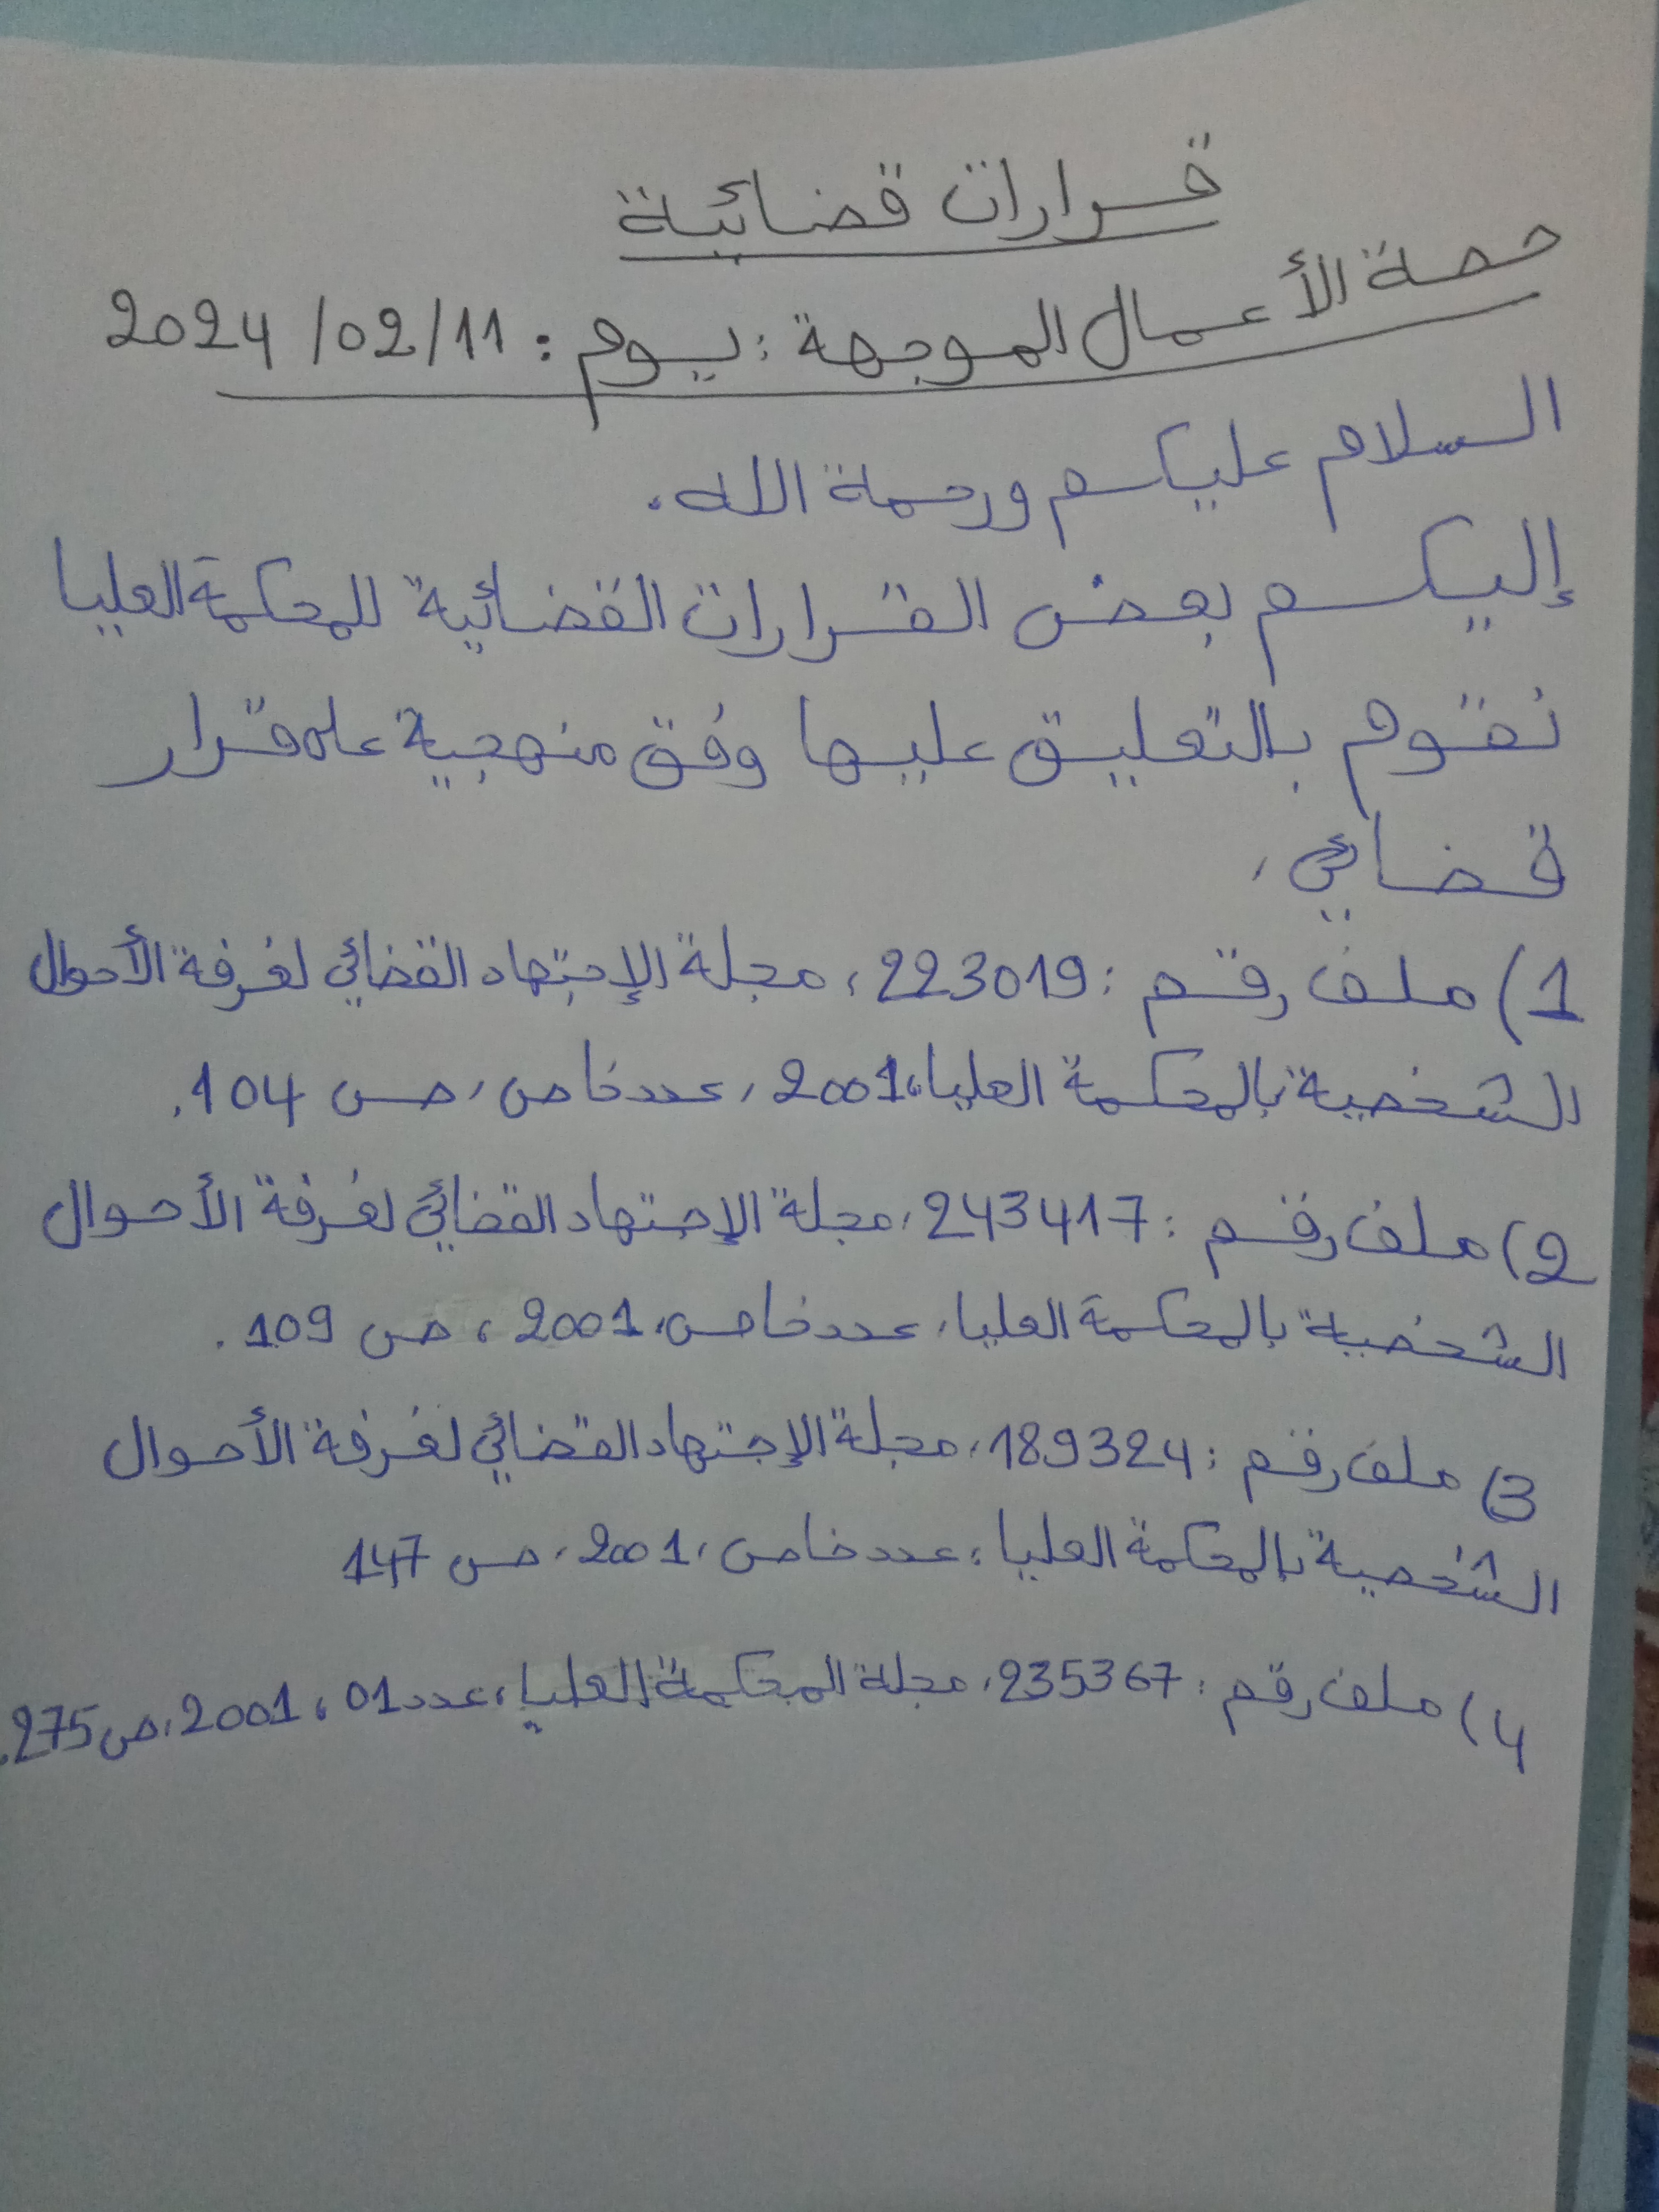 قرارات قضائية
حصة الأعمال الموجهة : يوم : 11/02/ 2024
السلام عليكم ورحمة الله.
إليكم بعض القرارات القضائية للمحكمة العليا
نقوم بالتعليق عليها وفق منهجية على قرار
قضائي،
1) ملف رقم : 223019، مجلة الإجتهاد القضائي لغرفة الأحوال
الشخصية بالمحكمة العليا، 2001، عدد خاص، ص 104.
2) ملف رقم : 243417، مجلة الإجتهاد القضائي لغرفة الأحوال
الشخصية بالمحكمة العليا، عدد خاص، 2001، ص 109.
3) ملف رقم : 189324، مجلة الإجتهاد القضائي لغرفة الأحوال
الشخصية بالمحكمة العليا، عدد خاص، 2001، ص 147
4) ملف رقم : 235367، مجلة المحكمة العليا، عدد 01، 2001، ص 275.